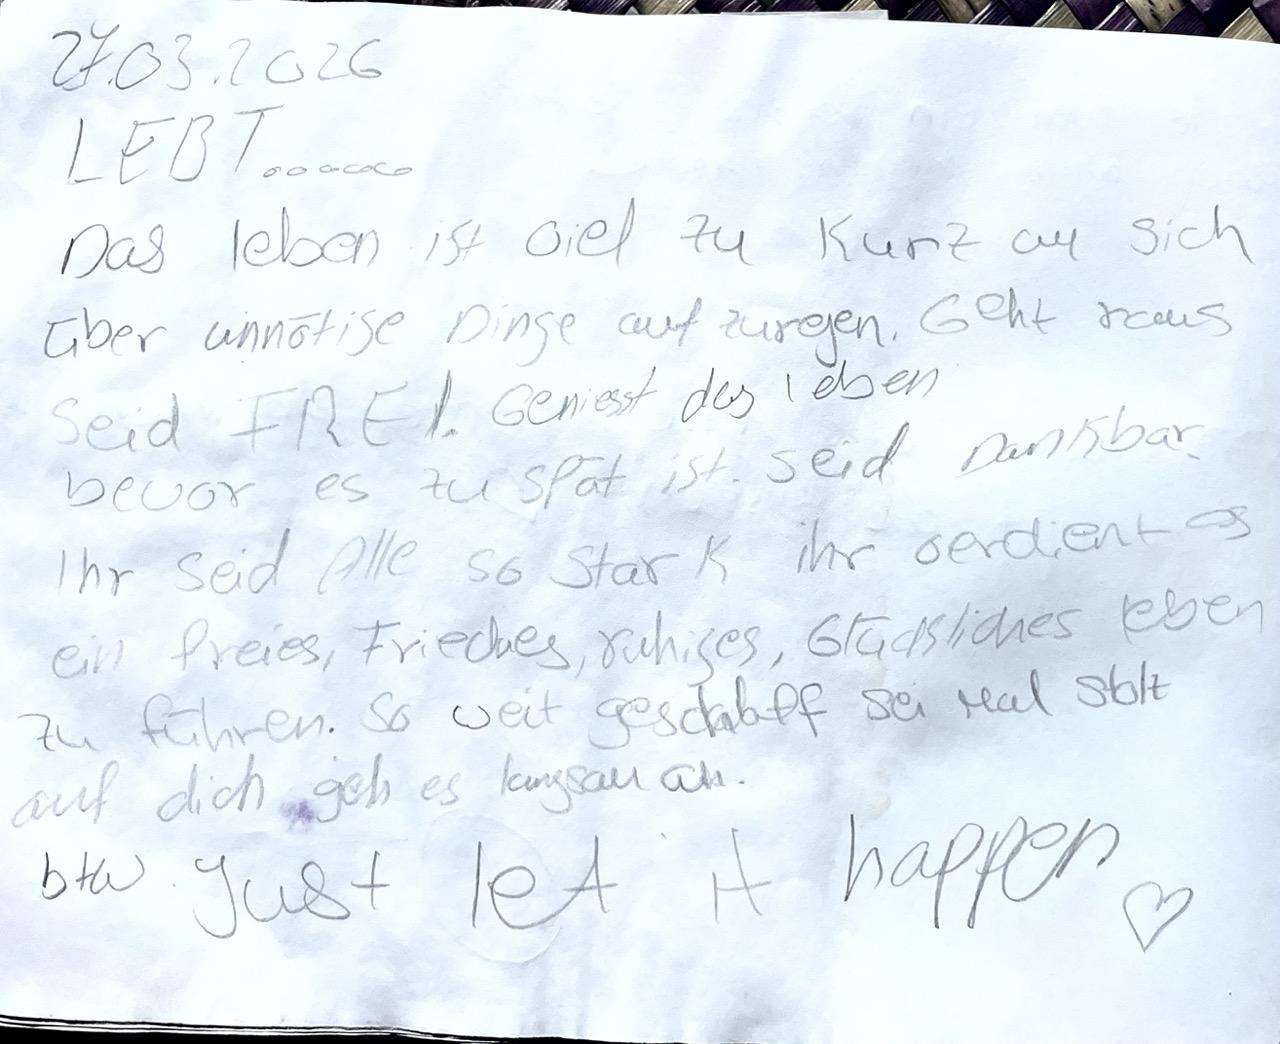 27.03.2026
LEBT......
Das leben ist viel zu Kurz um sich
über unnötige Dinge auf zuregen. Geht raus
Seid FREI. Geniesst das leben
bevor es zu spät ist. seid Dankbar.
Ihr seid Alle so Stark ihr verdient es
ein freies, Friedches, ruhiges, Glücksliches leben
zu führen. So weit geschafft sei mal stolz
auf dich geh es langsam an.
btw. Just let it happen ♡